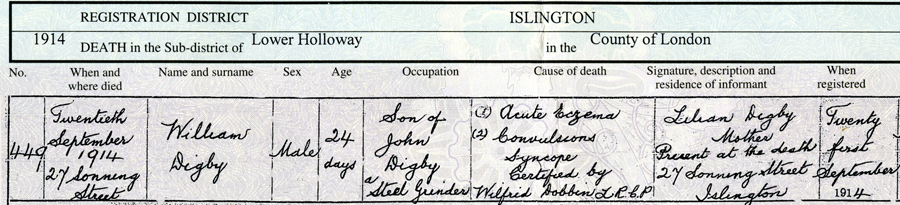 REGISTRATION DISTRICT ISLINGTON
1914 DEATH in the Sub-district of Lower Holloway in the County of London
No. When and where died Name and surname Sex Age Occupation Cause of death Signature, description and residence of informant When registered
449
Twentieth
September
1914
27 Sonning
Street
William
Digby
Male
24
days
Son of
John
Digby
a
Steel Grinder
(1) Acute Eczema
(2) Convulsions
Syncope
Certified by
Wilfrid Dobbin L.R.C.P.
Lilian Digby
Mother
Present at the death
27 Sonning Street
Islington
Twenty
first
September
1914